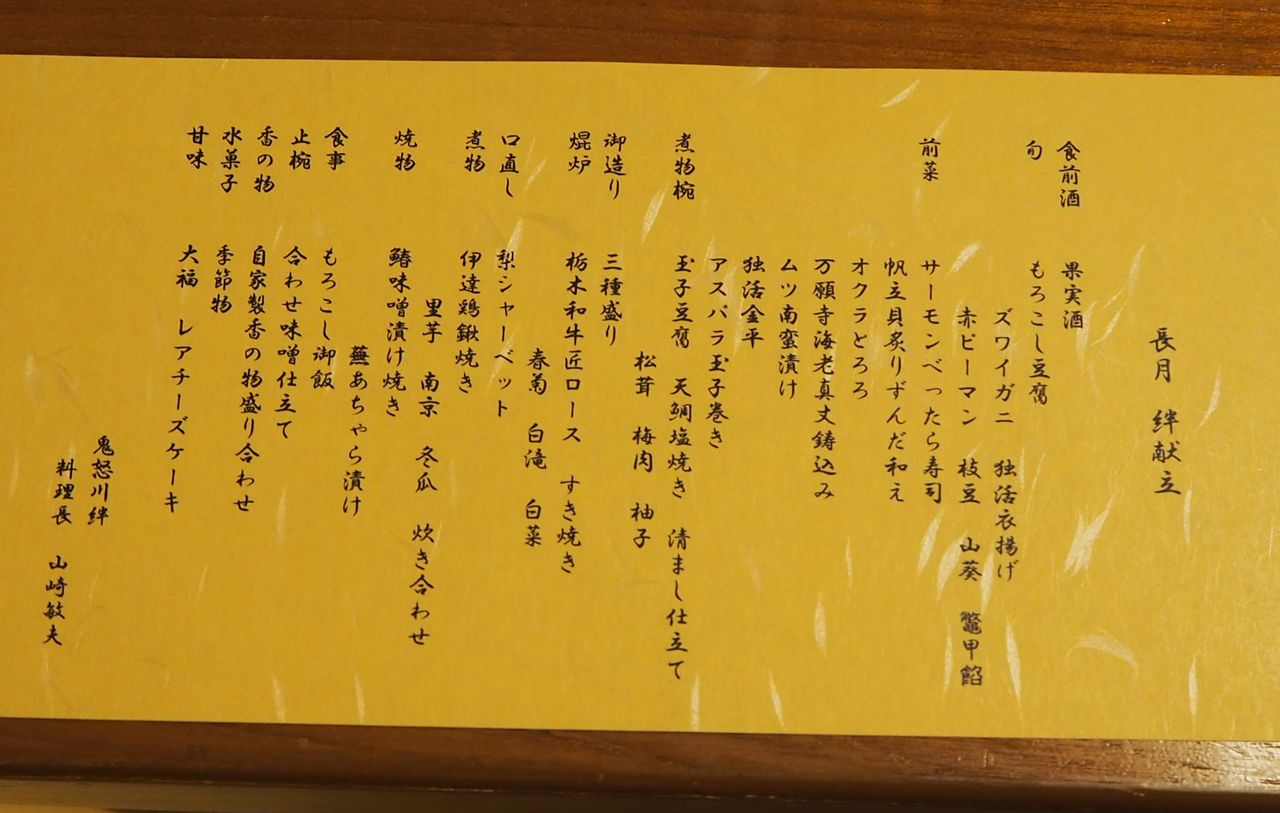 長月　絆献立
食前酒　果実酒
旬　もろこし豆腐
ズワイガニ　独活衣揚げ
赤ピーマン　枝豆　山葵　鼈甲餡
前菜　サーモンべったら寿司
帆立貝炙りずんだ和え
オクラとろろ
万願寺海老真丈鋳込み
ムツ南蛮漬け
独活金平
アスパラ玉子巻き
煮物椀　玉子豆腐　天鯛塩焼き　清まし仕立て
松茸　梅肉　柚子
御造り　三種盛り
焜炉　栃木和牛匠ロース　すき焼き
春菊　白滝　白菜
口直し　梨シャーベット
煮物　伊達鶏鍬焼き
里芋　南京　冬瓜　炊き合わせ
焼物　鰆味噌漬け焼き
蕪あちゃら漬け
食事　もろこし御飯
止椀　合わせ味噌仕立て
香の物　自家製香の物盛り合わせ
水菓子　季節物
甘味　大福　レアチーズケーキ
鬼怒川絆
料理長　山崎敏夫